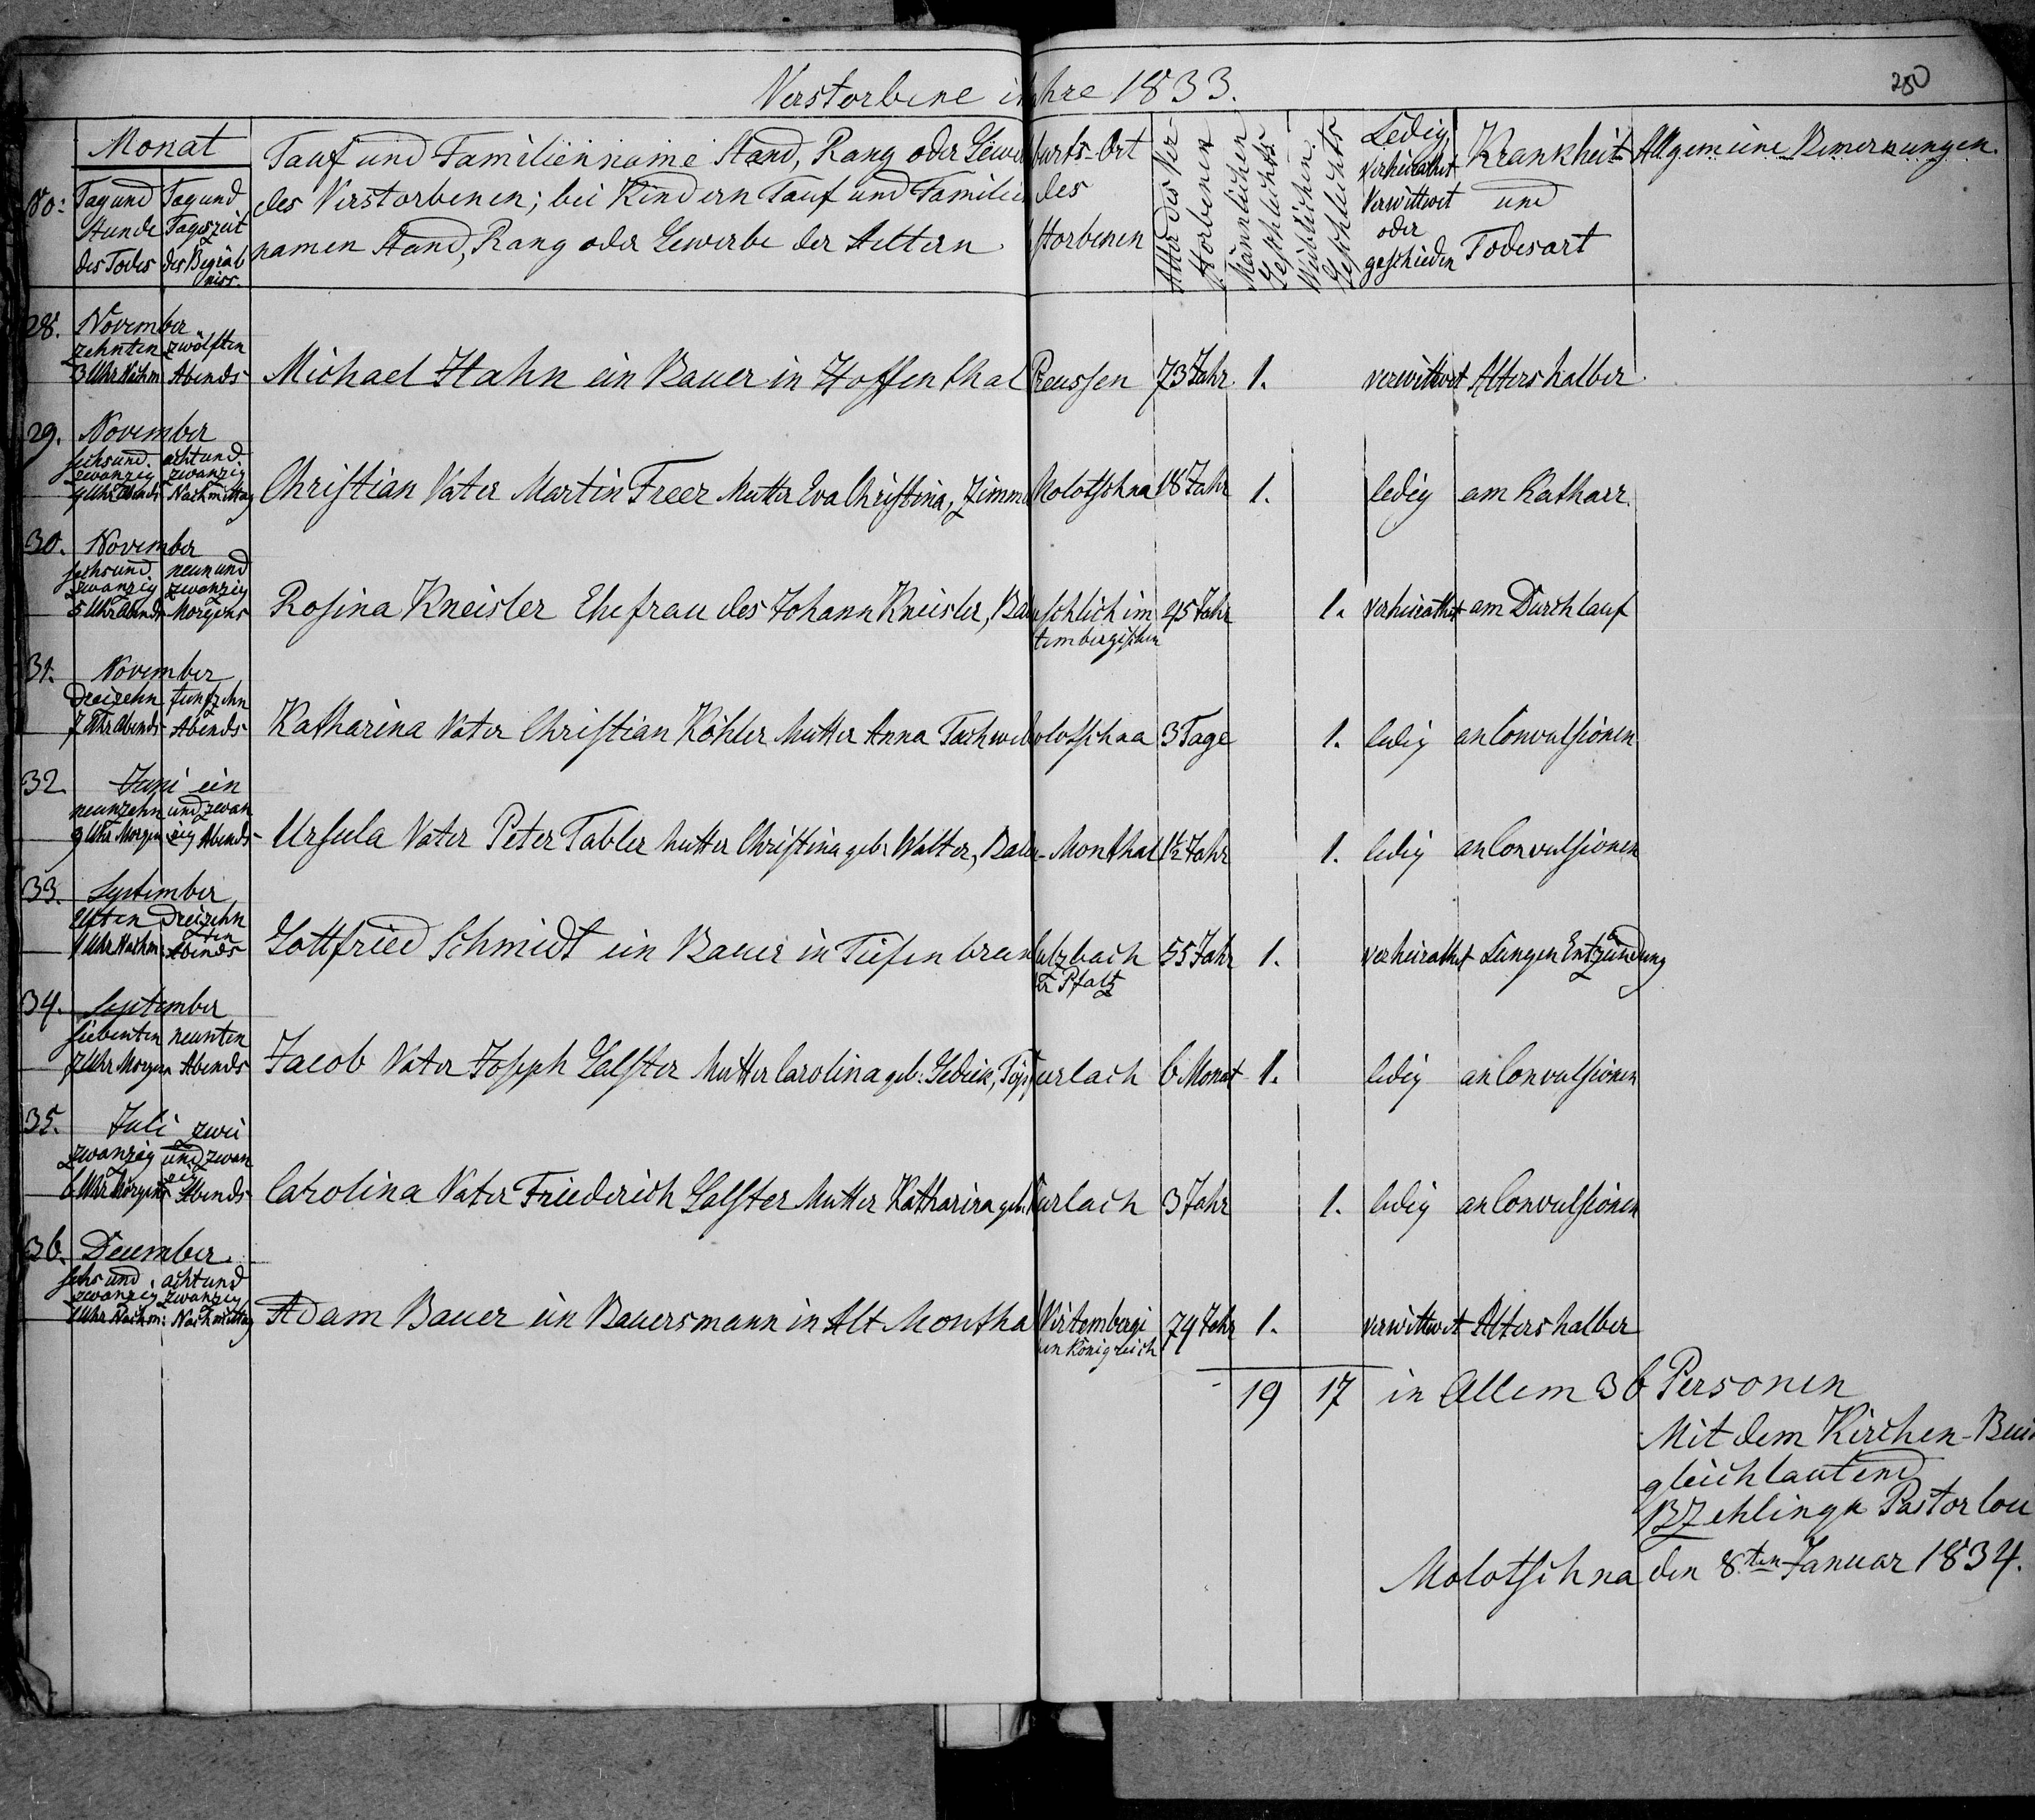 Verstorbene i hre 1833.
280
No: Monat Tauf und Familien name Stand, Rang oder Gewe burts-Ort Alter des Ver- Männlichen Weiblichen Ledig Krankheit Allgemeine Bemerkungen.
Tag und Tag und des Verstorbenen; bei Kindern Tauf und Familien des storbenen Geschlechts Geschlechts Verheirathet und
Stunde Tageszeit namen Stand, Rang oder Gewerbe der Aeltern storbenen Verwittwet Todesart
des Todes des Begräb oder
niss. geschieden
28. November
zehnten zwölften
3 Uhr Nachm Abends Michael Hahn ein Bauer in Hoffenthal Preussen 73 Jahr 1. verwittwet Alters halber
29. November
sechsund achtund
zwanzig zwanzig
9 Uhr Abends Nachmittag Christian Vater Martin Freer Mutter Eva Christina, Zimme Molotschna 18 Jahr 1. ledig am Katharr.
30. November
sechsund neunund
zwanzig zwanzig
5 Uhr Abends Morgens Rosina Kneisler Ehefrau des Johann Kneisler, Bau schlich im 45 Jahr 1. verheirathet am Durchlauf
tembergischen
31. November
Dreizehn funfzehn
7 Uhr Abends Abends Katharina Vater Christian Köhler Mutter Anna olotschna 3 Tage 1. ledig an Convulsionen
32. Juni ein
neunzehn und zwan
9 Uhr Morgen zig Abends Ursula Vater Peter Tabler Mutter Christina geb: Walter, Bau - Monthal 1½ Jahr 1. ledig an Convulsionen
33. September
Elften Dreizehn
ten
1 Uhr Nachm: Abends Gottfried Schmidt ein Bauer in Tiefenbrun ulzbach 55 Jahr 1. verheirathet Lungen Entzündung
er Pfaltz
34. September
siebenten neunten
7 Uhr Morgen Abends Jacob Vater Joseph Galster Mutter Carolina geb: Gedeik, Töpf urlach 6 Monat 1. ledig an Convulsionen
35. Juli zwei
zwanzig und zwan
zig
6 Uhr Morgens Abends Carolina Vater Friederich Galster Mutter Katharina geb: urlach 3 Jahr 1. ledig an Convulsionen
36. December
sechsund achtund
zwanzig zwanzig
1 Uhr Nachm: Nachmittag Adam Bauer ein Bauersmann in Alt Montha Virtembergi 74 Jahr 1. verwittwet Alters halber
en Königreich
19 17 in Allem 36 Personen
Mit dem Kirchen-Buch
gleichlautend
Pastor
Molotschna den 8ten Januar 1834.